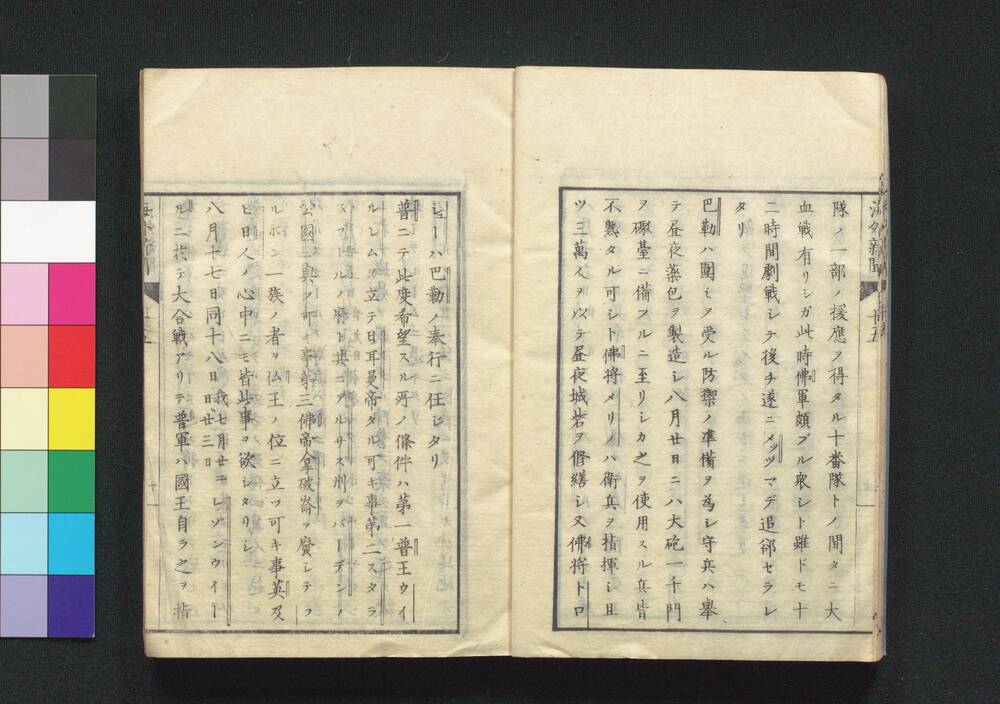 隊ノ一部ノ援應ヲ得タル十番隊トノ間タニ大
血戰有リシガ此時佛軍頗ブル衆シト雖ドモ十
二時間劇戰シテ後チ遂ニメッツマデ追郤セラレ
タリ
巴勒ハ圍ミヲ受ル防禦ノ準備ヲ為シ守兵ハ擧
テ昼夜薬包ヲ製造シ八月廿日ニハ大砲一千門
ヲ礟臺ニ備フルニ至リシカ之ヲ使用スル兵皆
不熟タル可シト佛將メリノハ衛兵ヲ指揮シ且
ツ三萬人ヲ以テ昼夜城砦ヲ修繕シ又佛將トロ
海外新聞 十五
シーハ巴勒ノ奉行ニ任シタリ
普ニテ此度希望スル所ノ條件ハ第一普王ウイ
ルレムヲ立テ日耳曼帝タル可キ事第二スタラ
スブールノ府ト共ニアルサス州ヲバーデンノ
公國ニ與フ可キ事第三佛帝人拿破崙ヲ廢シテフ
ルボン一族ノ者ヲ仏王ノ位ニ立ツ可キ事英及
ヒ日人ノ心中ニモ皆此事ヲ欲シタリシ
八月十七日同十八日我七月廿二日廿三日レゾンウイー
ルニ於テ大合戰アリテ普軍ハ國王自ラ之ヲ指